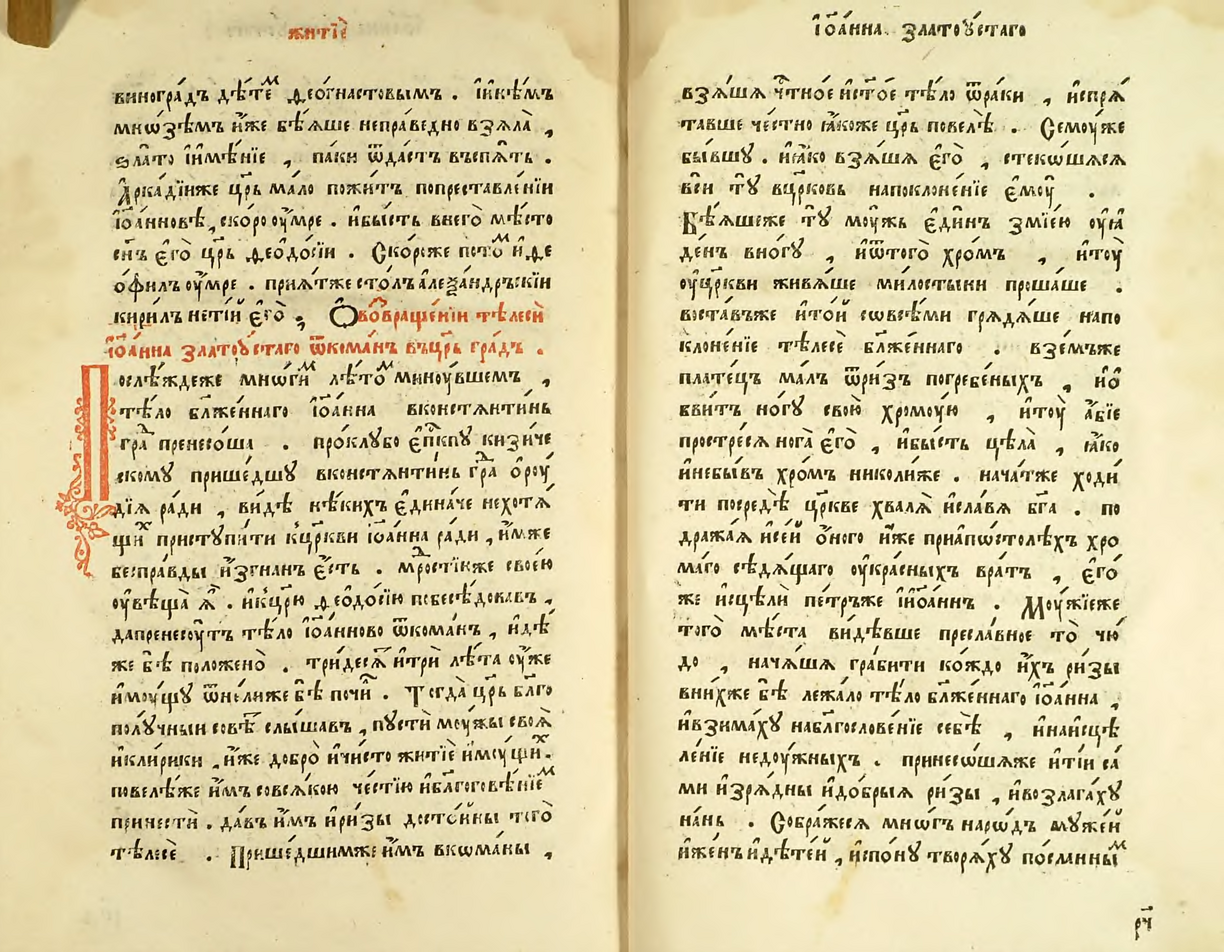 житїѐ
виногра́дъ дѣ́теᲨ ѳео́гнастовымъ . і҆и҆нѣ́мъ
мнѡ́зѣмъ и҆́же бѣ́ѧше непра́ведно взѧла̀ ,
ѕла́то і҆имѣ́нїе , па́ки ѿда́стъ въспѧ́ть .
А҆рка́дїиже цр҃ь ма́ло пожи́тъ попреставле́нїи
і҆ѡа́нновѣ , ско́ро оу҆́мре . и҆бы́сть внего̀ мѣ́сто
сн҃ъ є҆го̀ цр҃ь ѳеѻдо́сїи . Ско́рѡже пото́ⷨ и҆ ѳе
о́филъ оу҆́мре . прїѧ́тже сто́лъ а҆леѯа́ндръскїи
кири́лъ нетїи є҆го̀ . Ѻвозвраще́нїи тѣлесѝ
і҆ѡа́нна златоꙋ́стаго ѿкома́нъ въцр҃ь гра́дъ .
Послѣ́ждеже мно́гиⷨ лѣ́тоⷨ мину́вшемъ ,
тѣ́ло бл҃же́ннаго і҆ѡа́нна вконстѧнти́нь
гра́ⷣ пренесо́ша . про́клубо є҆п҃кпу кизи́че
скому прише́дшу вконстѧнти́нь гра́ⷣ ѻ҆роу́
дїѧ ра́ди , ви́дѣ нѣ́кихъ є҆дина́че нехотѧ́
щиⷯ приступи́ти кцр҃кви і҆ѡа́нна ра́ди , и҆́мже
беспра́вды и҆згна́нъ є҆́сть . мⷣростїюже свое́ю
оу҆вѣща̀ ѧ҆̀ . и҆кцр҃ю ѳеѻдо́сїю побесѣ́довавъ ,
дапренесоу́тъ тѣ́ло і҆ѡа́нново ѿкома́нъ , и҆дѣ́
же бѣ̀ положено̀ . три́десѧ и҆трѝ лѣ́та оу҆́же
и҆моу́щꙋ ѿне́лиже бѣ̀ почи́л . Тогда̀ цр҃ь бл҃го
полу́чныи совѣ́т слы́шавъ , пустѝ моу́жы своѧ̀
и҆кли́рики , и҆́же добро̀ и҆чи́сто житїѐ и҆мꙋ́щиⷯ .
повелѣ́же и҆́мъ совсѧ́кою че́стїю и҆бл҃гоговѣ́нїеⷨ
принестѝ . да́въ и҆́мъ и҆ри́зы досто́йны того̀
тѣлесѐ . Прише́дшимже и҆́мъ вкѡма́ны ,
і҆ѡа́нна златоꙋ́стаго
взѧ́шѧ чⷭ҇тно́е и҆ст҃о́е тѣ́ло ѿра́ки , и҆спрѧ́
тавше че́стно ꙗ҆́коже цр҃ь повелѣ̀ . Семоу́же
бы́вшу . и҆ꙗ҆́ко взѧ́шѧ є҆го̀ , стеко́шасѧ
всѝ ту̀ вцр҃ковь напоклоне́нїе є҆моу̀ .
Бѣ́ѧшеже ту̀ моу́жь є҆ди́нъ змїе́ю оу҆ꙗ҆
де́нъ вно́гу , и҆ѿтого̀ хро́мъ , и҆тоу̀
оу҆цр҃кви живѧ́ше ми́лостыни проша́ше .
воста́въже и҆то́й совсѣ́ми грѧдѧ́ше напо
клоне́нїе тѣ́лесе бл҃же́ннаго . взе́мъже
плате́цъ ма́лъ ѿри́зъ погребе́ныхъ , и҆ѻ҆
вви́тъ но́гу свою̀ хромо́ую , и҆тоу̀ а҆́бїе
простре́сѧ нога̀ є҆го̀ , и҆бы́сть цѣла̀ , ꙗ҆́ко
и҆небы́въ хро́мъ николи́же . нача́тже ходи́
ти посредѣ̀ цр҃кве хвалѧ̀ и҆сла́вѧ бг҃а . по
дража́ѧ и҆се́й о҆́ного и҆́же приа҆пѡ́столѣхъ хро
ма́го сѣдѧ́щаго оу҆кра́сныхъ вра́тъ , є҆го́
же и҆сцѣлѝ пе́тръже и҆і҆ѡа́ннъ . Моу́жїеже
того̀ мѣ́ста ви́дѣвше пресла́вное то̀ чю́
до , нача́шѧ гра́бити ко́ждо и҆́хъ ри́зы
вни́хже бѣ̀ лежа́ло тѣ́ло бл҃же́ннаго і҆ѡа́нна ,
и҆взима́хꙋ набл҃гослове́нїе себѣ̀ , и҆наи҆сцѣ
ле́нїе недоу́жныхъ . принесо́шѧже и҆ті́и са́
ми и҆зрѧ́дны и҆до́брыѧ ри́зы , и҆возлага́хꙋ
на́нь . Собра́жесѧ мно́гъ наро́дъ му́жей
и҆же́нъ и҆дѣте́й , и҆спо́ну творѧ́хꙋ по́сланныⷨ
рч҃